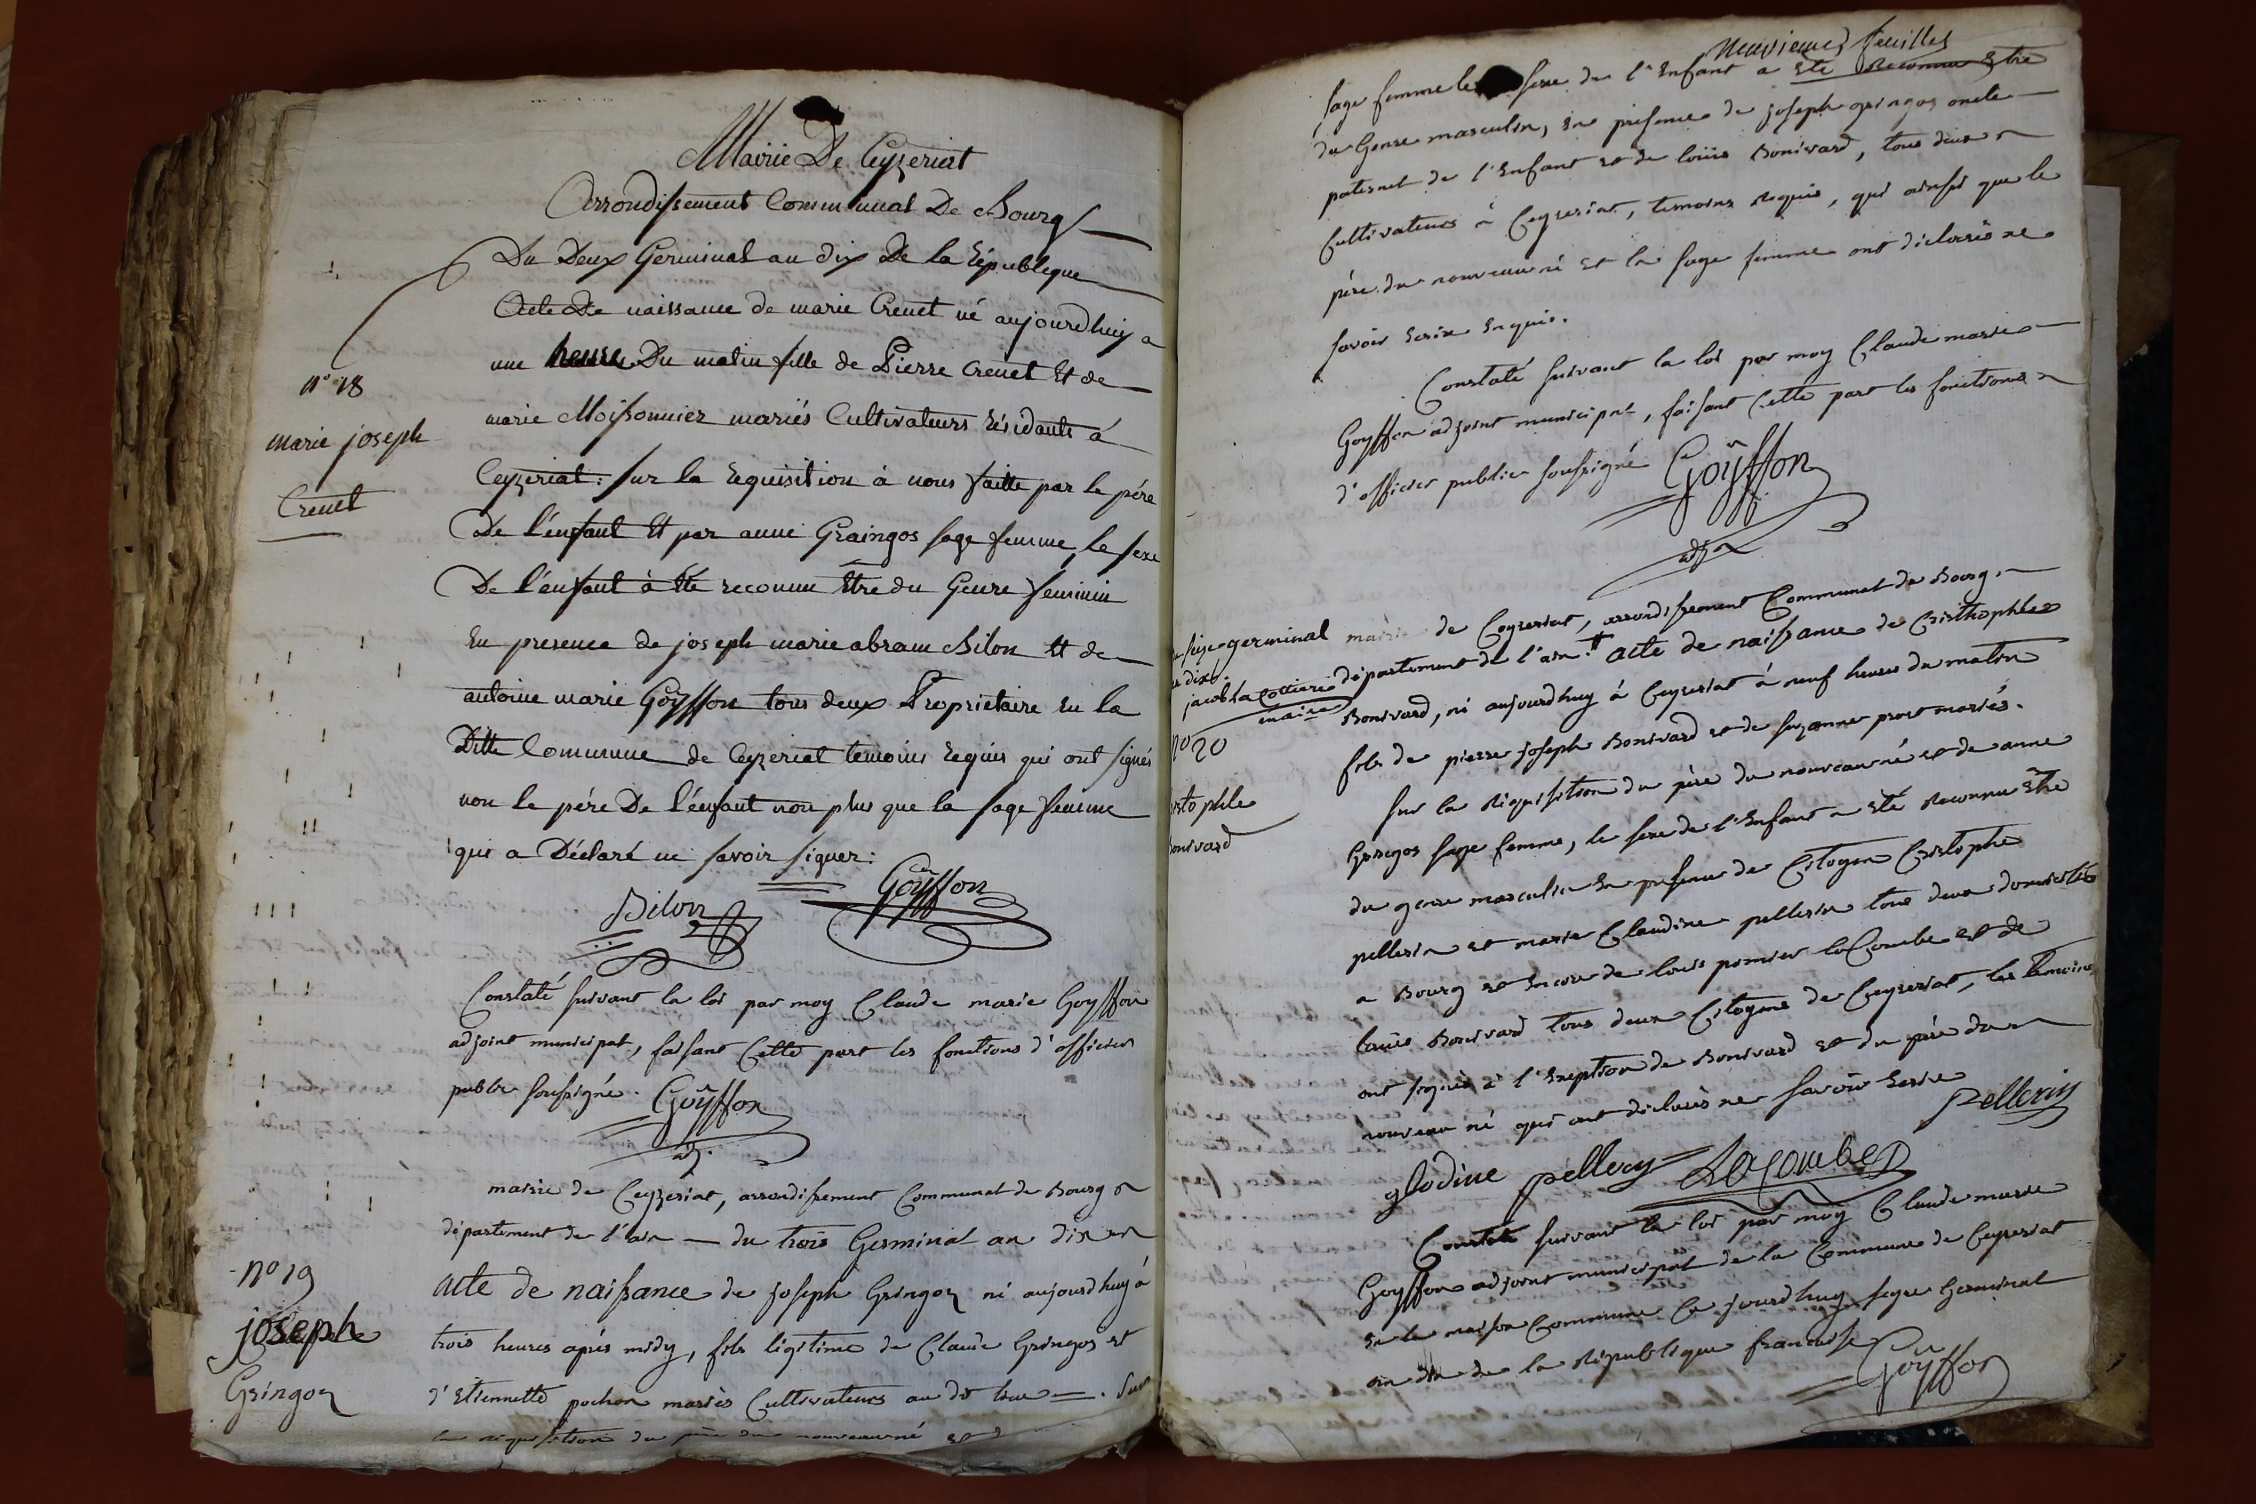 Mairie De Ceyzeriat
Arrondissement Communal De Bourg
Du Deux Germinal an dix De la République
Acte De naissance de marie Crenet né aujourdhuy a
une heure Du matin fille de Pierre Crenet Et de
marie Moissonnier mariés Cultivateurs résidants á
Ceyzeriat: sur la requisition à nous faitte par le pére
De l'enfant Et par anne Graingos sage femme, le sexe
De l'enfant à Eté reconnu Etre du Genre feminin
En presence de joseph marie abram Bilon Et de
antoine marie Goÿffon tous deux Proprietaire En la
Ditte Commune de Ceyzeriat temoins requis qui ont signés
non le pére De l'énfant non plus que la sage femme
qui a Déclaré ne savoir signer:
Bilon Goÿffon
n° 18
marie joseph
Crenet
Constaté suivant la loi par moy Claude marie Goyffon
adjoint municipal, faisant Cette part les fonctions d'officier
public soussigné. Goÿffon
adj.
mairie de Ceyzeriat, arrondissement Communal de Bourg
département de l'ain — du trois Germinal an dix
n° 19
joseph
Gringoz
acte de naissance de joseph Gringoz né aujourdhuy á
trois heures aprés midy, fils légitime de Claude Gringoz et
d'Etiennette pochon mariés Cultivateurs au dt lieu — . Sur
la réquisition du pére du nouveauné et d
Neuviemes feuilles
sage femme le sexe de l'Enfant a Eté Reconnu Etre
du Genre masculin, en présence de joseph gringoz oncle
paternel de l'Enfant et de loüis Bonivard, tous deux
Cultivateurs á Ceyzeriat, temoins Requis, qui ainsi que le
pére du nouveauné et la sage femme ont déclarés ne
savoir Ecrire Enquis.
Constaté suivant la loi par moy Claude marie
Goyffon adjoint municipal, faisant Cette part les fonctions
d'officier public soussigné Goÿffon
adj
seize germinal mairie de Ceyzeriat, arrondissement Communal de Bourg
dix. département de l'ain. acte de naissance de Cristhophle
jacob la Cottiere
maire
n° 20
istophle
onivard
Bonivard, né aujourdhuy á Ceyzeriat á neuf heures du matin
fils de pierre joseph Bonivard et de suzanne prost mariés.
sur la Réquisition du pére du nouveauné et de anne
Gringos sage femme, le sexe de l'Enfant a Eté Reconnu Etre
du genre masculin En présence de Citoyen Cristophe
pellerin et marie Claudine pellerin tous deux domiciliés
a Bourg et Encore de louis pomier laCombe et de
loüis Bonivard tous deux Citoyens de Ceyzeriat, les temoins
ont signés á l'Exeption de Bonivard et du pére du
nouveau né qui ont déclarés ne savoir Ecrire
Pellerin
glodine pellery LaCombe
Constaté suivant la loi par moy Claude marie
Goyffon adjoint municipal de la Commune de Ceyzeriat
En la maison Commune Ce jourdhuy seize Germinal
an dix de la République francaise
Goÿffon